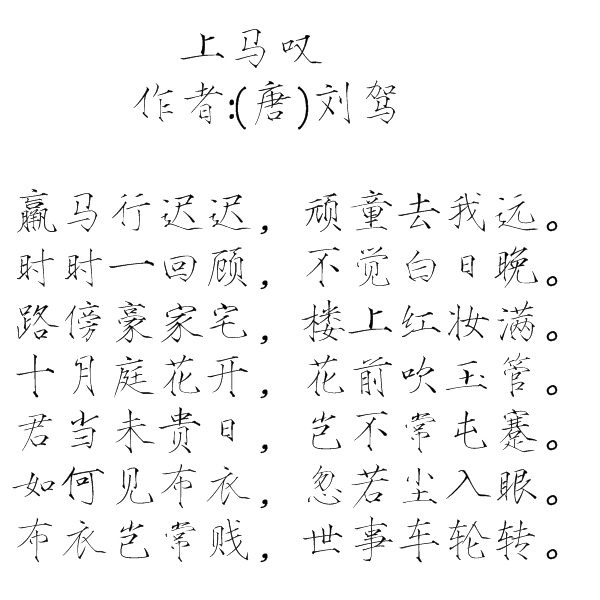 上马叹
作者:(唐)刘驾
羸马行迟迟,顽童去我远。
时时一回顾,不觉白日晚。
路傍豪家宅,楼上红妆满。
十月庭花开,花前吹玉管。
君当未贵日,岂不常屯蹇。
如何见布衣,忽若尘入眼。
布衣岂常贱,世事车轮转。